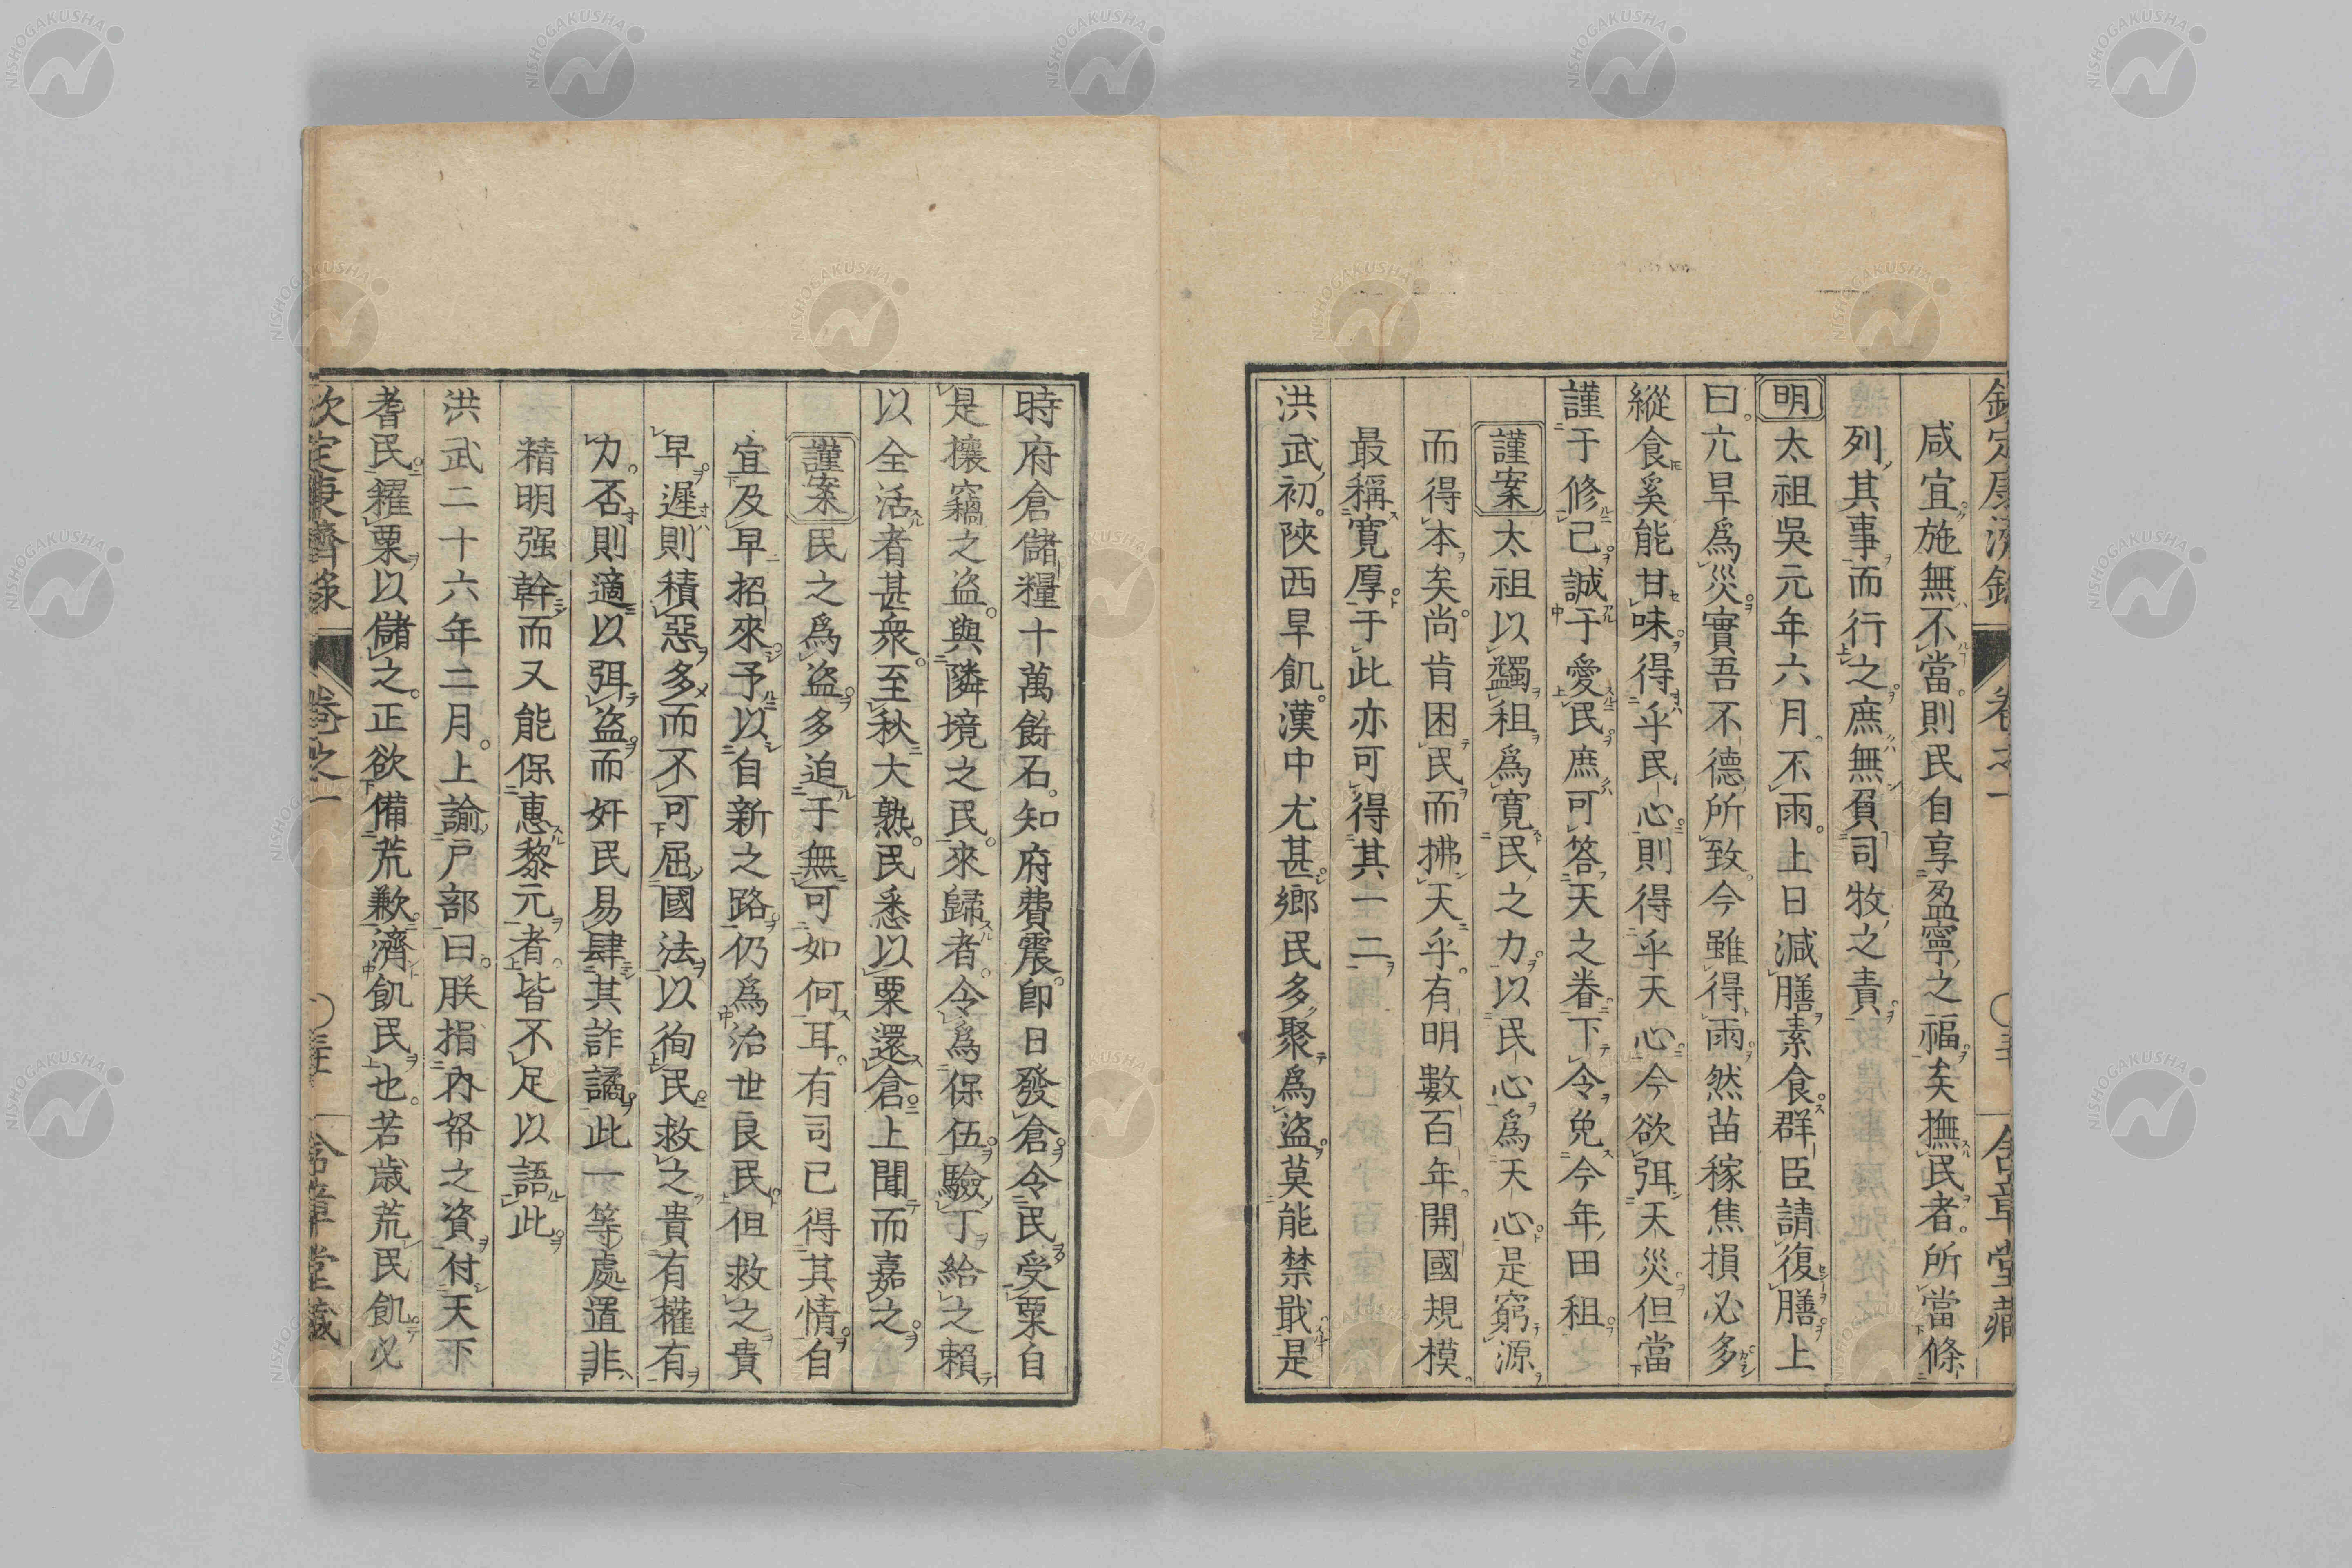 欽定康濟錄 卷之一 〇 含章堂藏
咸宜施無不當則民自享盈寧之福矣撫民者所當條
列其事而行之庶無負司牧之責
明太祖吳元年六月不雨上日減膳素食群臣請復膳上
曰亢旱爲災實吾不德所致今雖得雨然苗稼焦損必多
縱食奚能甘味得乎民心則得乎天心今欲弭天災但當
謹于修己誠于愛民庶可答天之眷下令免今年田租
謹案太祖以蠲租爲寬民之力以民心爲天心是窮源
而得本矣尚肯困民而拂天乎有明數百年開國規模
最稱寬厚于此亦可得其一二
洪武初陝西旱飢漢中尤甚鄉民多聚爲盜莫能禁戢是
時府倉儲糧十萬餘石知府費震卽日發倉令民受粟自
是攘竊之盜與隣境之民來歸者令爲保伍驗丁給之賴
以全活者甚衆至秋大熟民悉以粟還倉上聞而嘉之
謹案民之爲盜多迫于無可如何耳有司已得其情自
宜及早招來予以自新之路仍爲治世良民但救之貴
早遲則積惡多而不可屈國法以徇民救之貴有權有
力否則適以弭盜而奸民易肆其詐譎此一等處置非
精明强幹而又能保惠黎元者皆不足以語此
洪武二十六年二月上諭戶部曰朕捐內帑之資付天下
耆民糴粟以儲之正欲備荒歉濟飢民也若歲荒民飢必
欽定康濟錄 卷之一 〇 含章堂藏
NISHOGAKUSHA